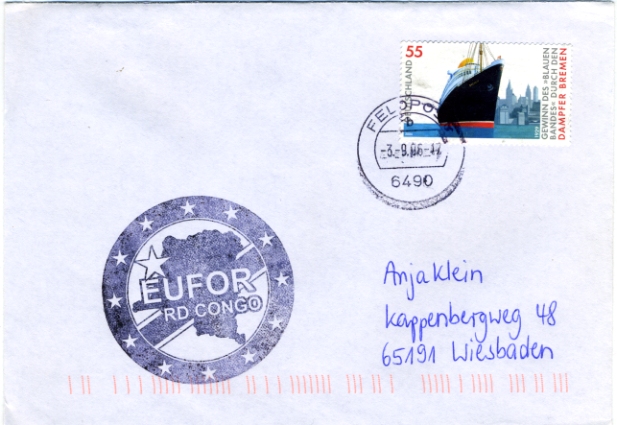 55
DEUTSCHLAND
GEWINN DES »BLAUEN
BANDES« DURCH DEN
DAMPFER BREMEN
FELDPO
b
-3.-9.06-17
6490
EUFOR
RD CONGO
Anja Klein
Kappenbergweg 48
65191 Wiesbaden